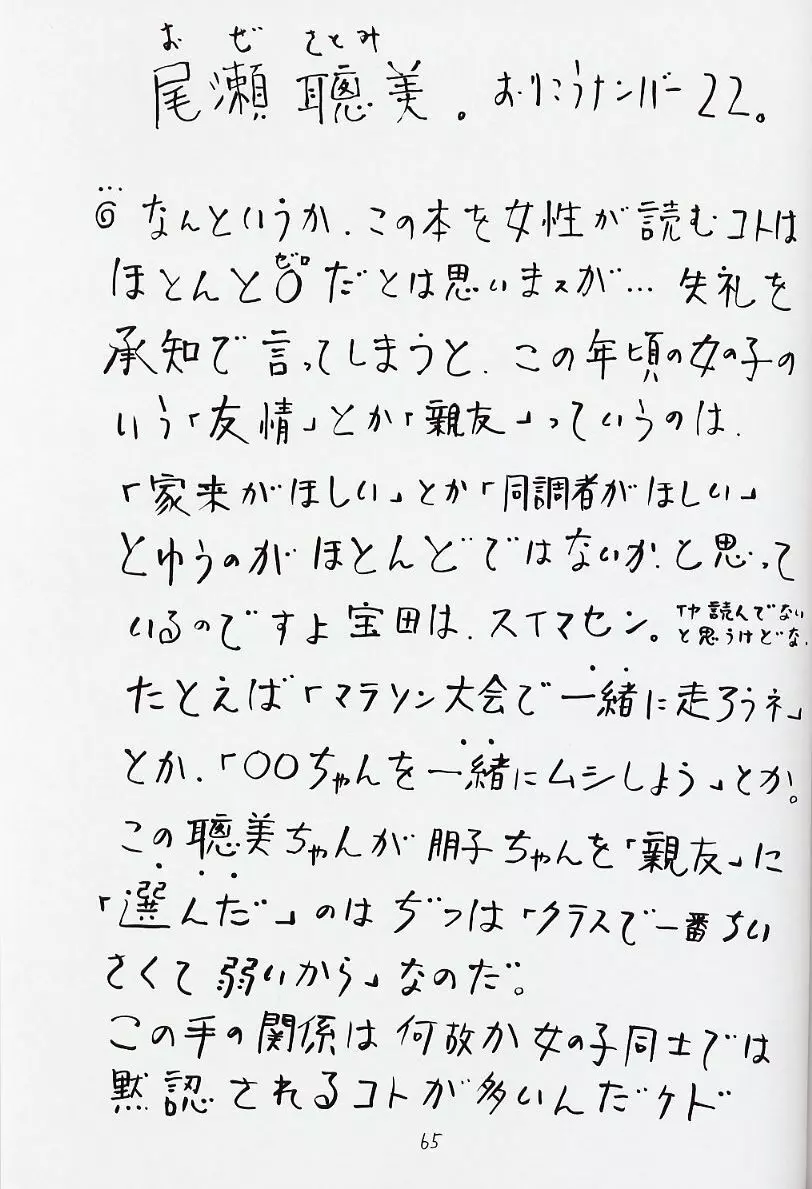 おぜ さとみ
尾瀬 聰美。おりこうナンバー22。
…
◎ なんというか、この本を女性が読むコトは
ゼロ
ほとんど0だとは思いまスが… 失礼を
承知で言ってしまうと、この年頃の女の子の
いう「友情」とか「親友」っていうのは、
「家来がほしい」とか「同調者がほしい」
とゆうのがほとんどではないか?と思って
いるのですよ宝田は、スイマセン。
仲読んでない
と思うけどな、
たとえば「マラソン大会で一緒に走ろうネ」
とか、「○○ちゃんを一緒にムシしよう」とか。
この聰美ちゃんが朋子ちゃんを「親友」に
「選んだ」のはぢつは「クラスで一番ちい
さくて弱いから」なのだ。
この手の関係は何故か女の子同士では
黙認されるコトが多いんだケド
65